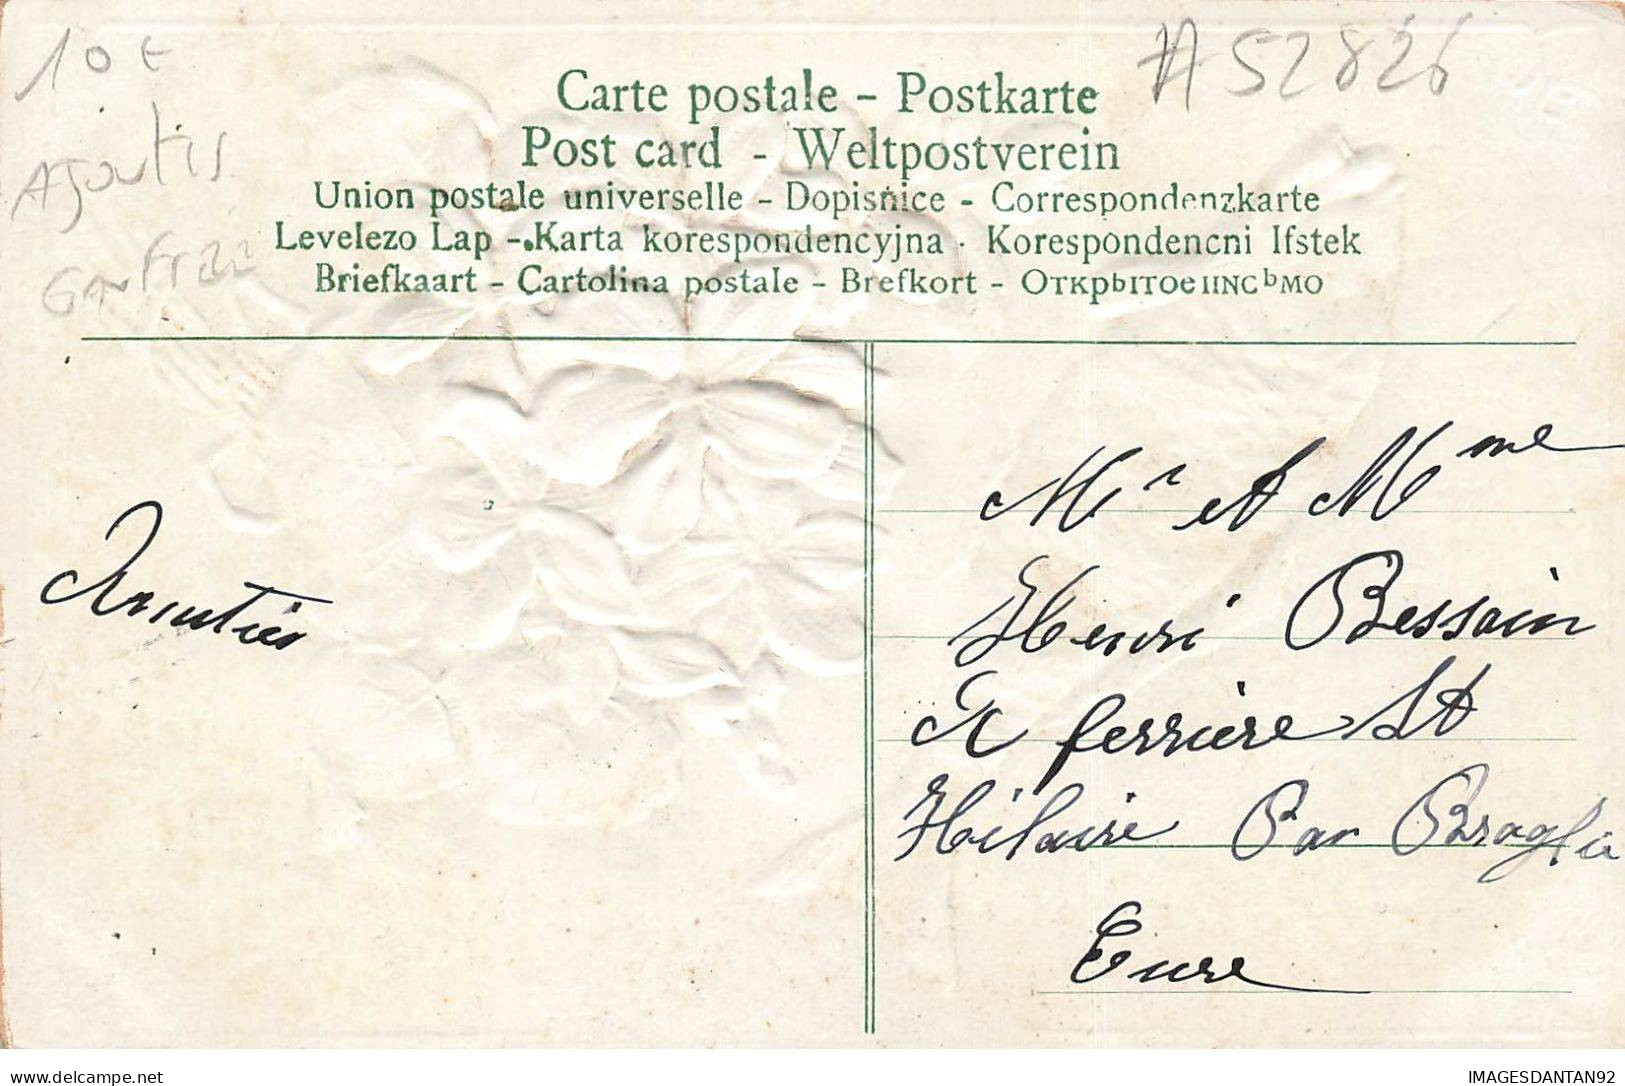 10 €
Ajoutis
Gaufrée
#52826
Carte postale – Postkarte
Post card - Weltpostverein
Union postale universelle – Dopisnice - Correspondenzkarte
Levelezo Lap -.Karta korespondencyjna · Korespondencni lfstek
Briefkaart - Cartolina postale - Brefkort - ОткрЫТОе IINC ЬМО
Amitiés
Mr et Mme
Henri Bessain
A ferrière St
Hilaire Par Broglie
Eure
delcampe.net
IMAGESDANTAN92